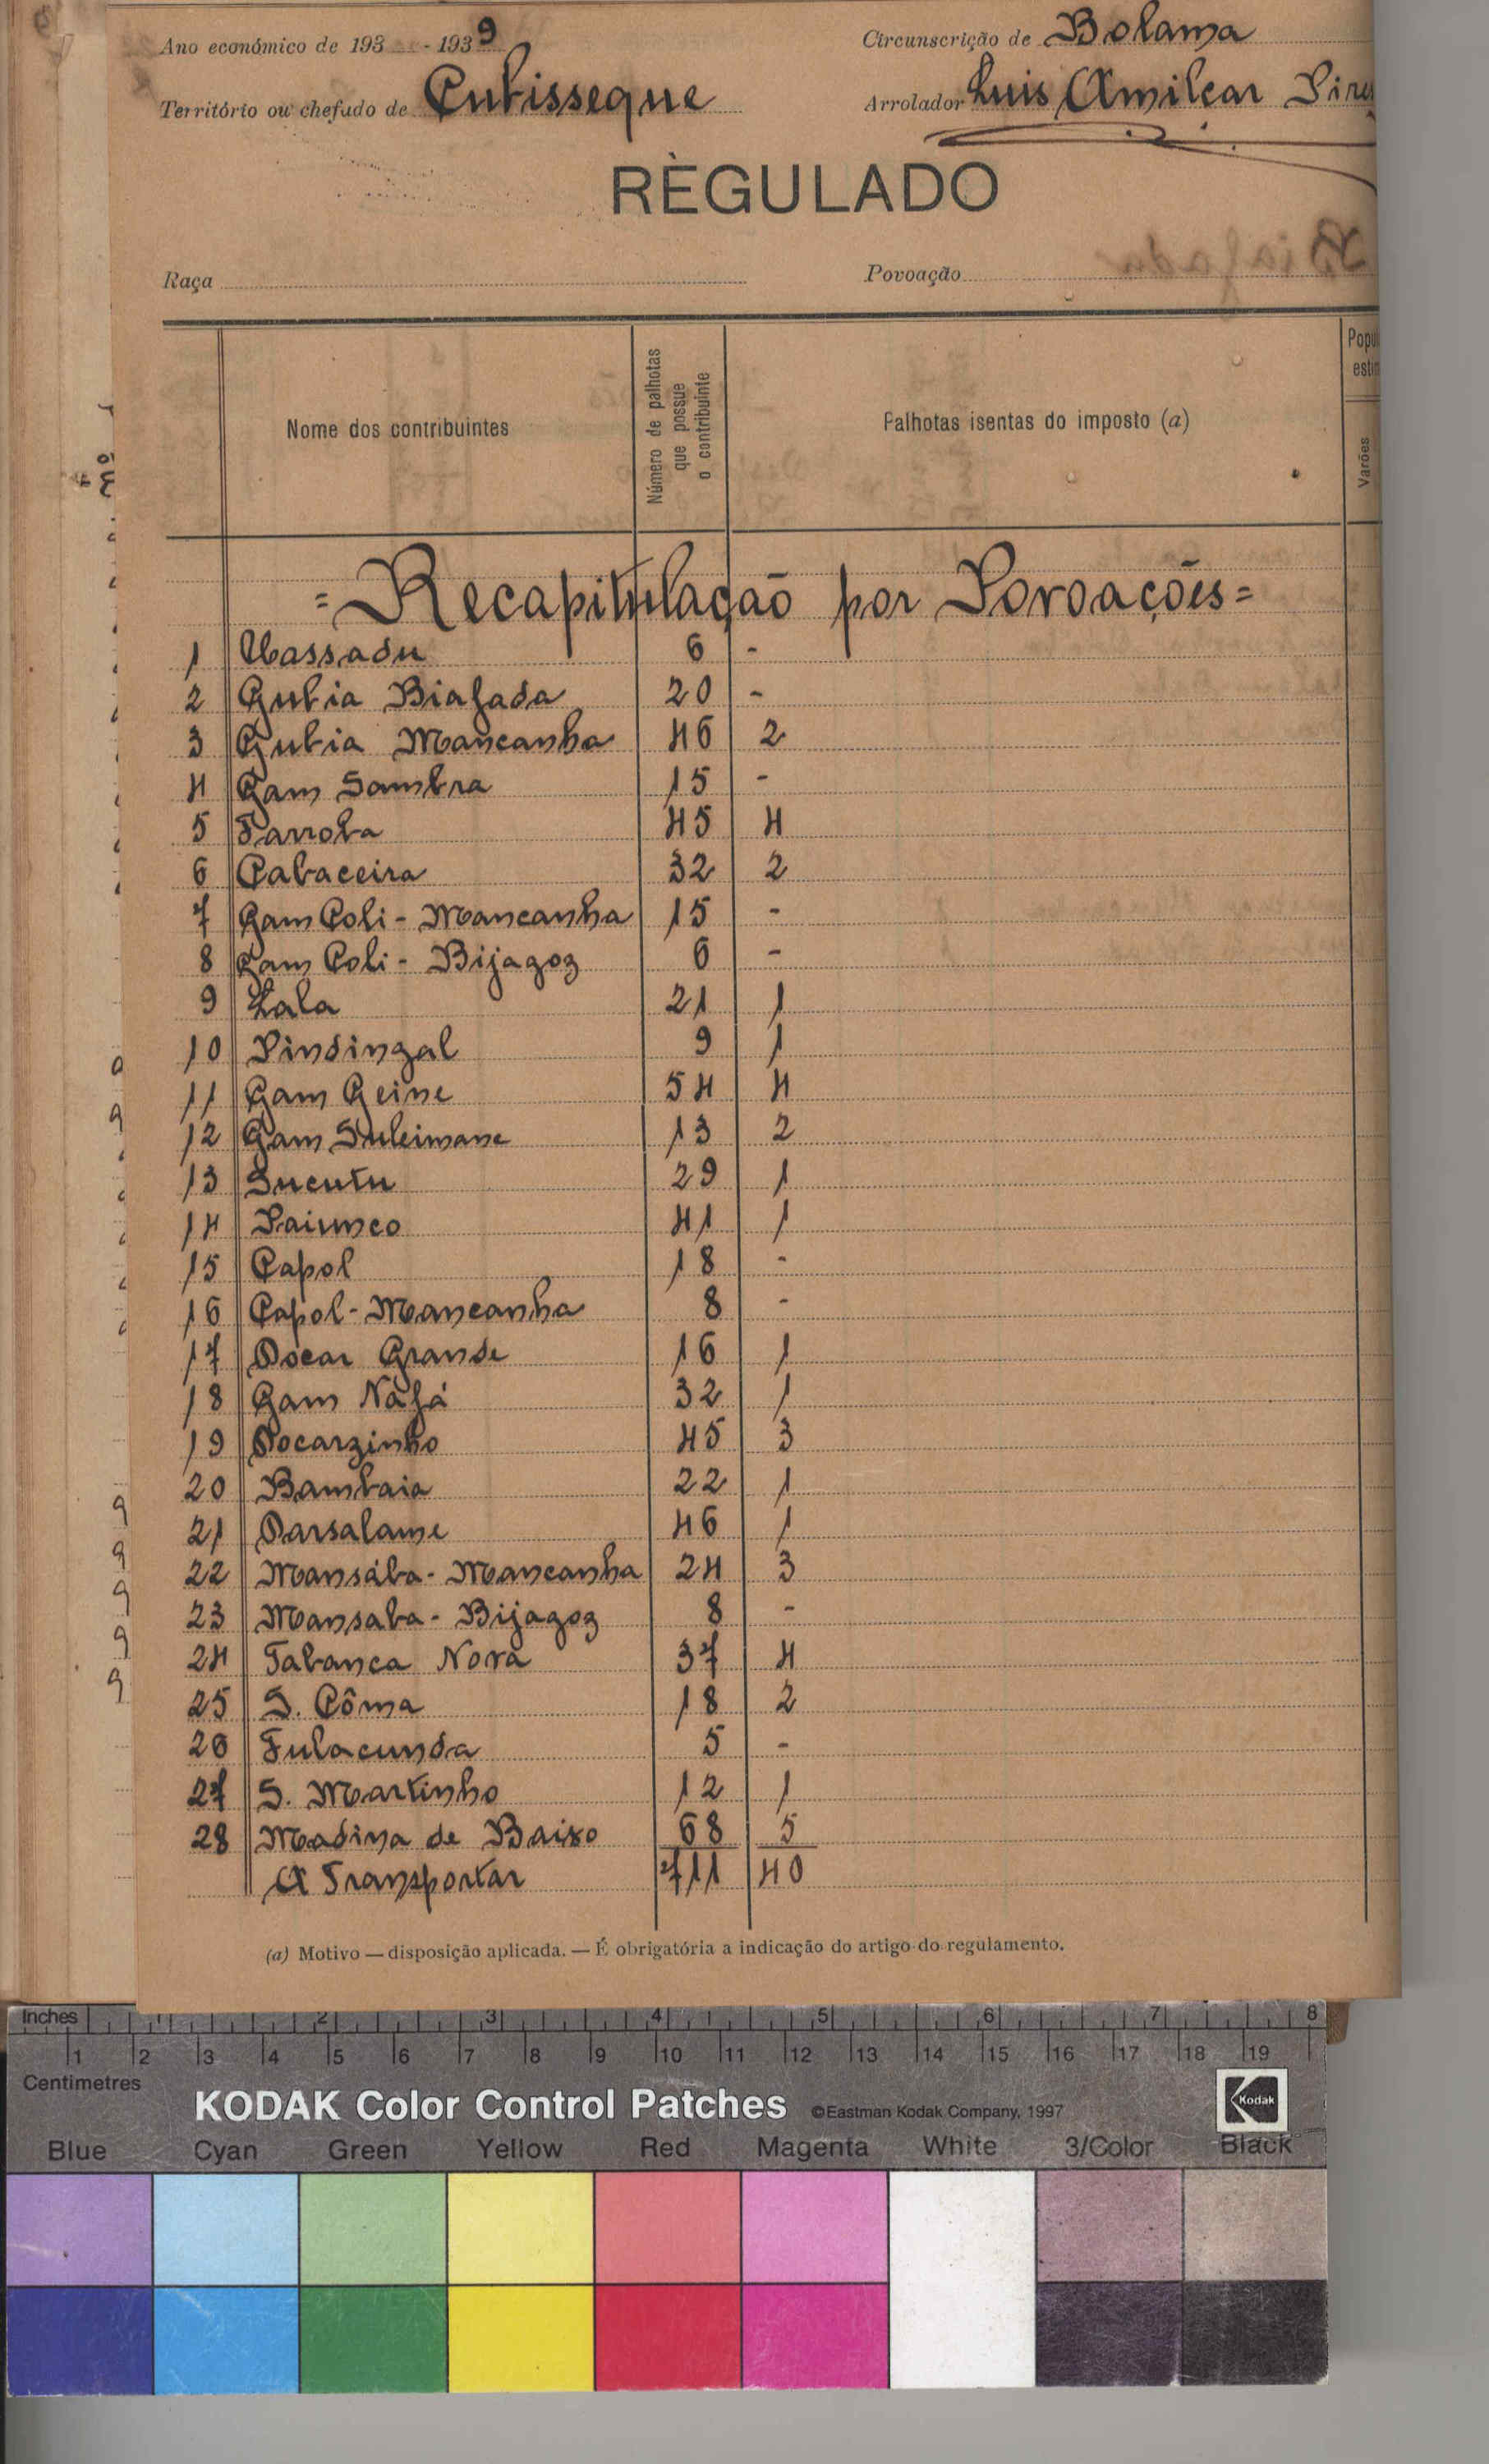 Ano económico de 193 - 1939
Circunscrição de Bolama
Território ou chefado de Cubisseque
Arrolador Luis Amilcar Pires
RÈGULADO
Raça
Povoação
Nome dos contribuintes
Número de palhotas que possue o contribuinte
Palhotas isentas do imposto (a)
Varões
= Recapitulação por Povoações =
1 Uassadu 6 -
2 Gubia Biafada 20 -
3 Gubia Mancanha 46 2
4 Gam Sambra 15 -
5 Farroba 45 4
6 Cabaceira 32 2
7 Gam Coli - Mancanha 15 -
8 Gam Coli - Bijagoz 6 -
9 Lala 21 1
10 Pindingal 9 1
11 Gam Geine 54 4
12 Gam Suleimane 13 2
13 Sucutu 29 1
14 Paiunco 41 1
15 Capol 18 -
16 Capol - Mancanha 8 -
17 Docar Grande 16 1
18 Gam Nafá 32 1
19 Docarzinho 45 3
20 Bambaia 22 1
21 Darsalame 46 1
22 Mansába - Mancanha 24 3
23 Mansaba - Bijagoz 8 -
24 Tabanca Nova 37 4
25 S. Côma 18 2
26 Fulacunda 5 -
27 S. Martinho 12 1
28 Madina de Baixo 68 5
A Transportar 711 40
(a) Motivo — disposição aplicada. — É obrigatória a indicação do artigo do regulamento.
Inches 1 2 3 4 5 6 7 8
1 2 3 4 5 6 7 8 9 10 11 12 13 14 15 16 17 18 19
Centimetres
KODAK Color Control Patches ©Eastman Kodak Company, 1997 Kodak
Blue Cyan Green Yellow Red Magenta White 3/Color Black